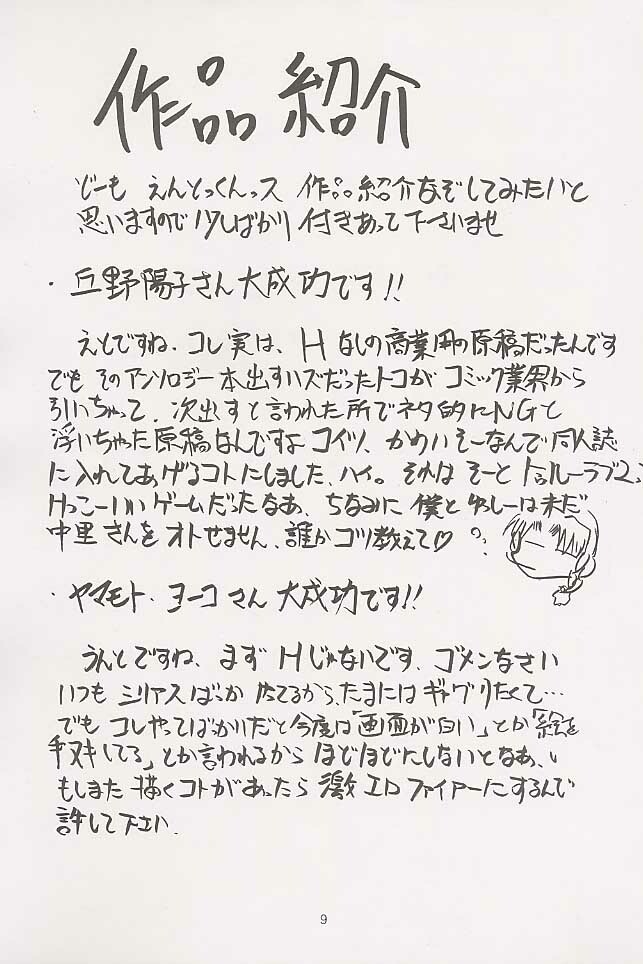 作品紹介
どーも えんとっくんっス 作品紹介なぞしてみたいと
思いますので 少しばかり 付きあって下さいませ
・丘野陽子さん大成功です!!
えとですね、コレ実は、Hなしの商業用の原稿だったんです
でも そのアンソロジー本出すハズだったトコが コミック業界から
引いちゃって、次出すと言われた所でネタ的にNGと
浮いちゃった原稿なんですよ コイツ、かわいそーなんで同人誌
に入れてあげるコトにしました、ハイ。それは そーと トゥルーラブ2、
けっこーいいゲームだったなあ、ちなみに 僕と は未だ
中里さんを オトせません、誰かコツ教えて♡
・ヤマモト・ヨーコさん 大成功です!!
うんとですね、まず Hじゃないです、ゴメンなさい
いつも シリアスばっか たてるから、たまには ギャグりたくて…
でも コレやってばっかいだと今度は「画面が白い」とか「絵を
手ヌキしてる」とか言われるから ほどほどにしないとなあ、
もしまた 描くコトがあったら 激エロファイアーにするんで
許して下さい.
9